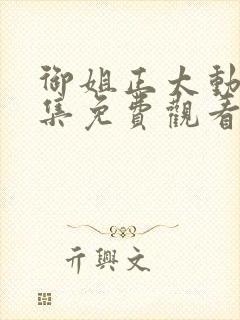 御姐正大動
集免費觀看
亓興文